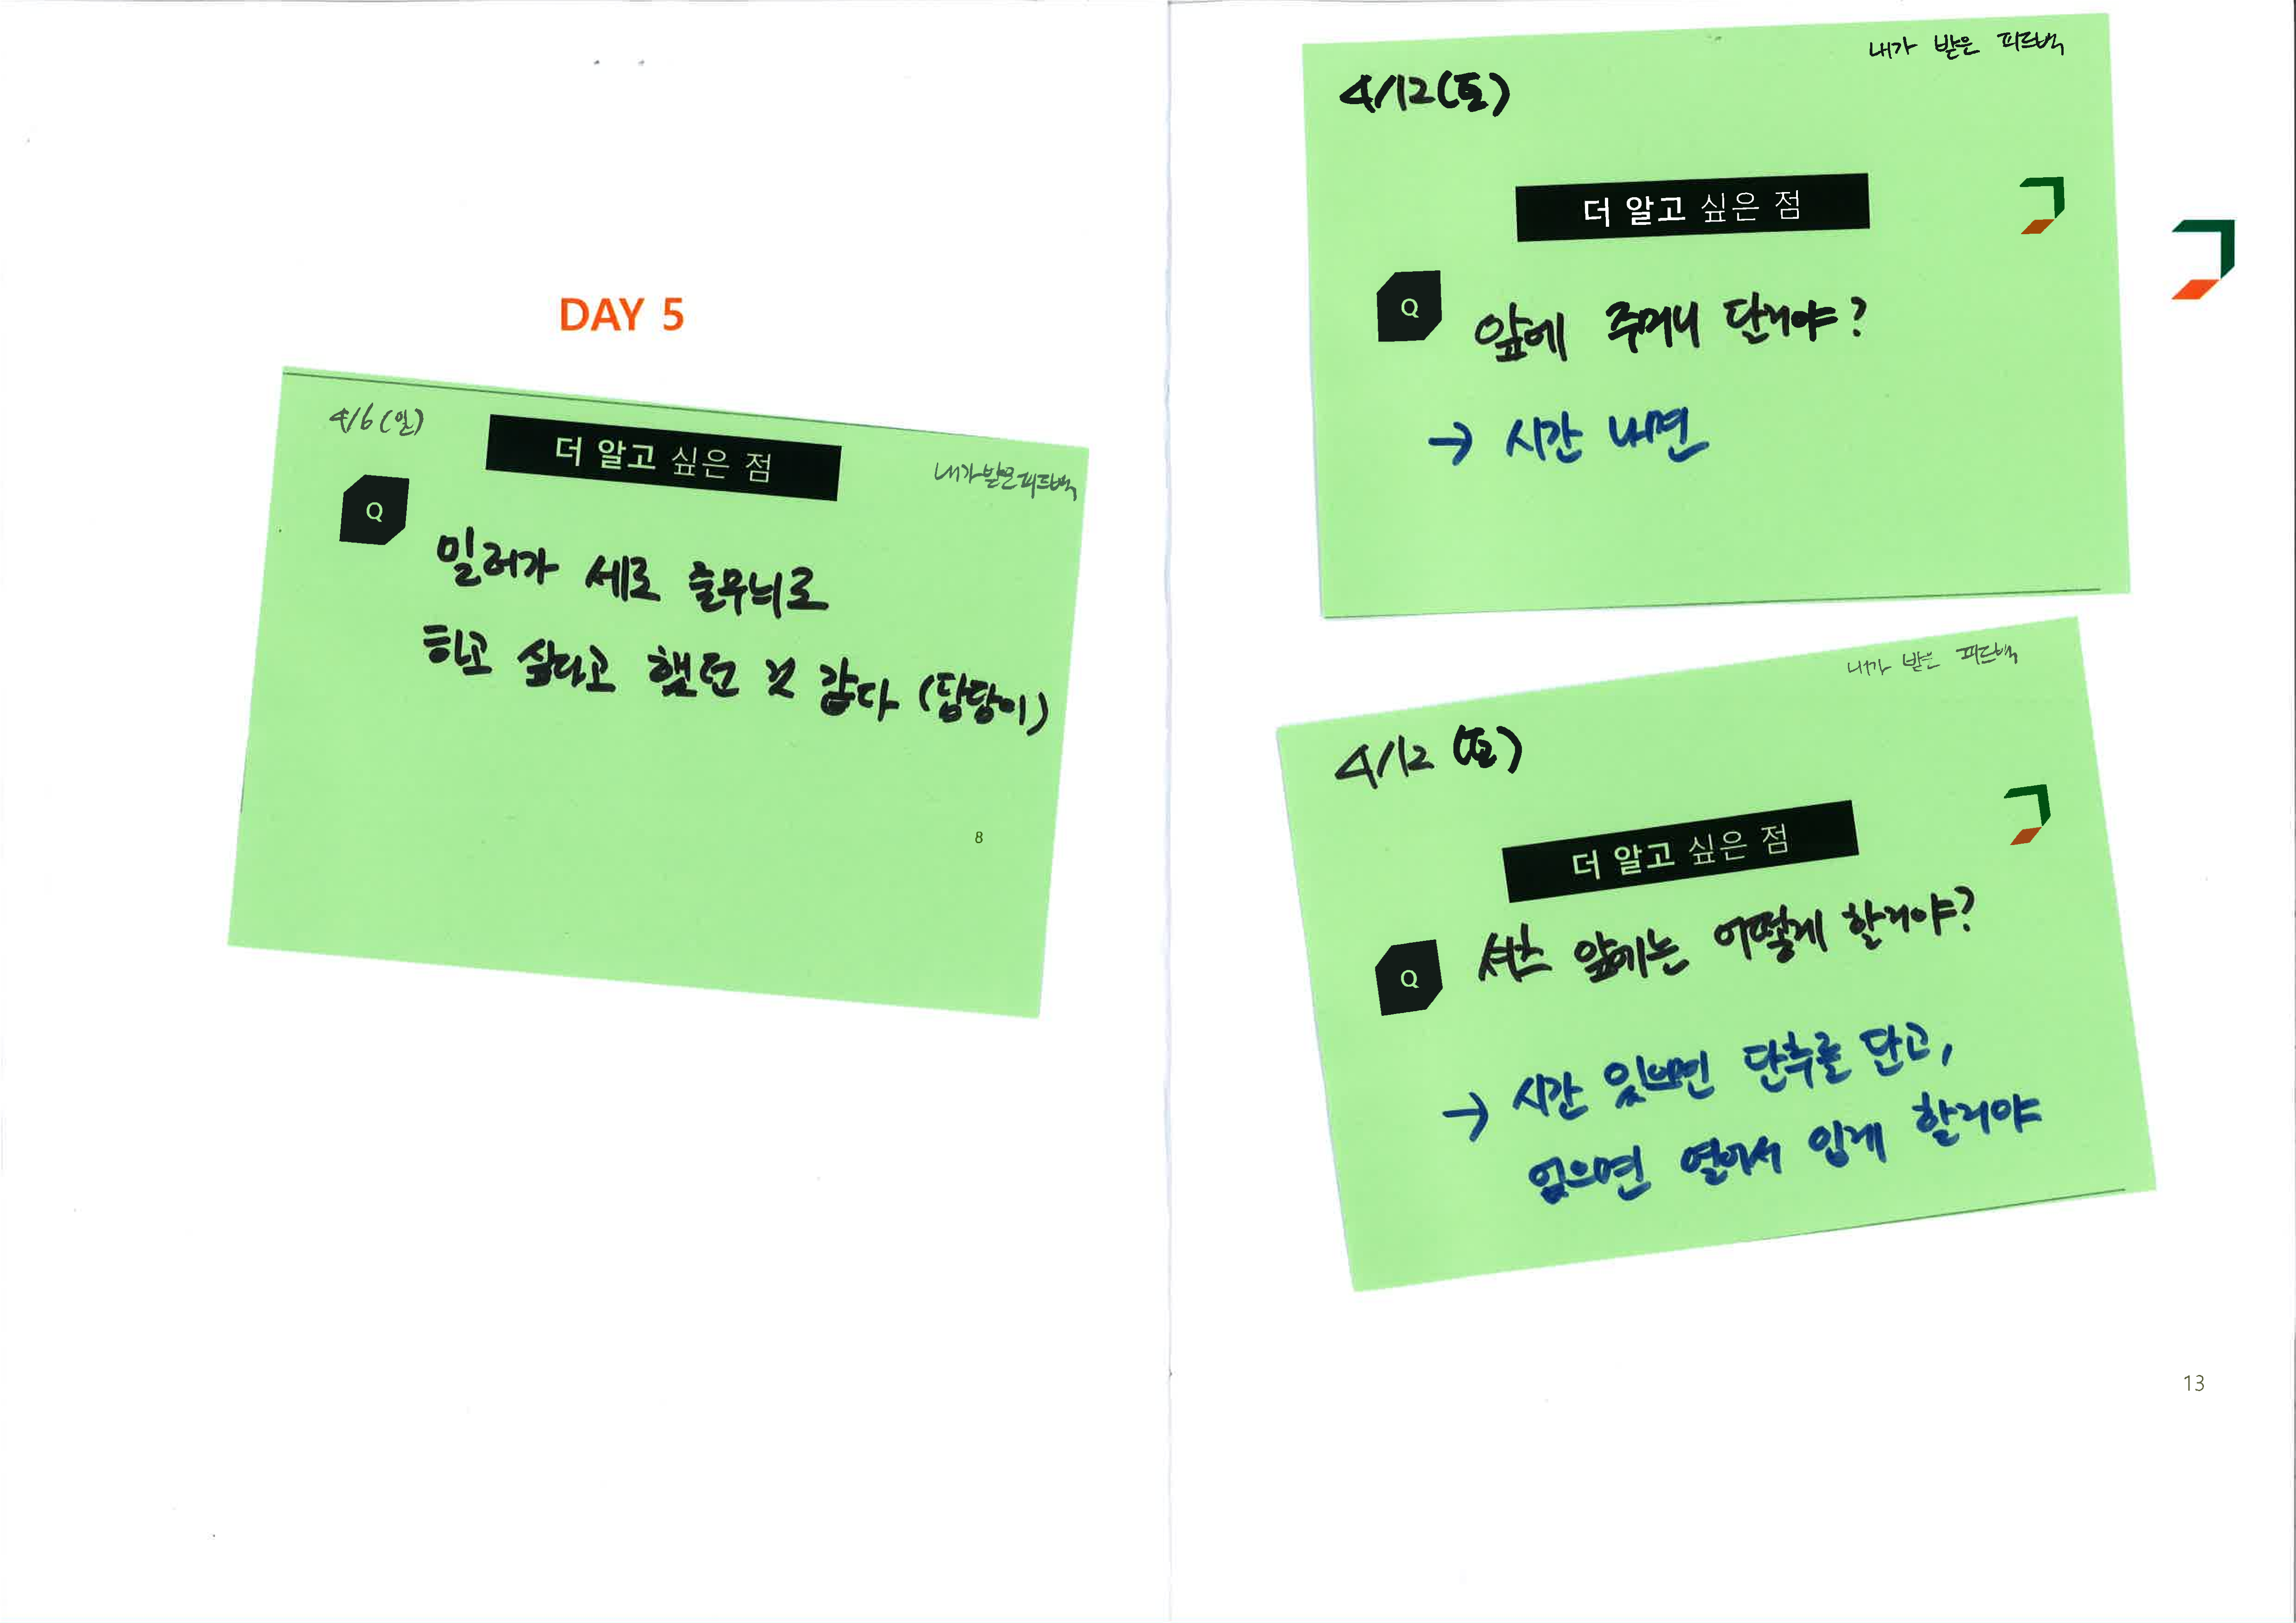 DAY 5
4/6 (일)
더 알고 싶은 점
내가 받은 피드백
Q
밀러가 세로 줄무늬로
하고 싶다고 했던 것 같다 (탐탐이)
8
내가 받은 피드백
4/12(토)
더 알고 싶은 점
Q
앞에 주머니 단거야?
→ 시간 나면
내가 받은 피드백
4/12 (토)
더 알고 싶은 점
Q
셔츠 앞에는 어떻게 할거야?
→ 시간 있으면 단추를 단고,
없으면 열어서 입게 할거야
13